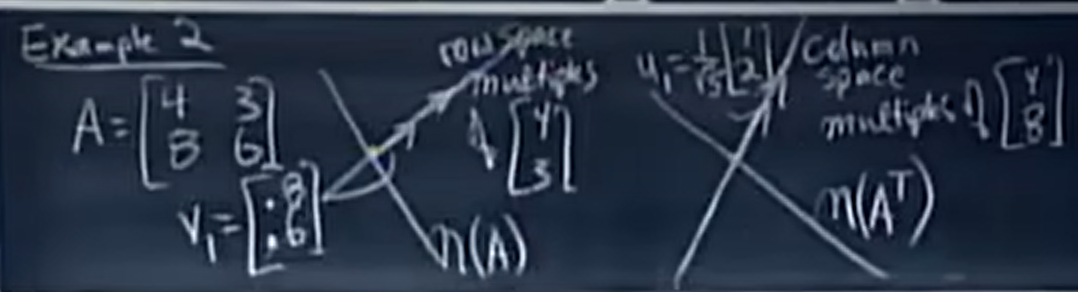 Example 2
A = [4 3
8 6]
v₁ = [.8
.6]
row space
multiples
of [4
3]
n(A)
u₁ = 1/√5 [1
2]
column
space
multiples of [4
8]
n(Aᵀ)